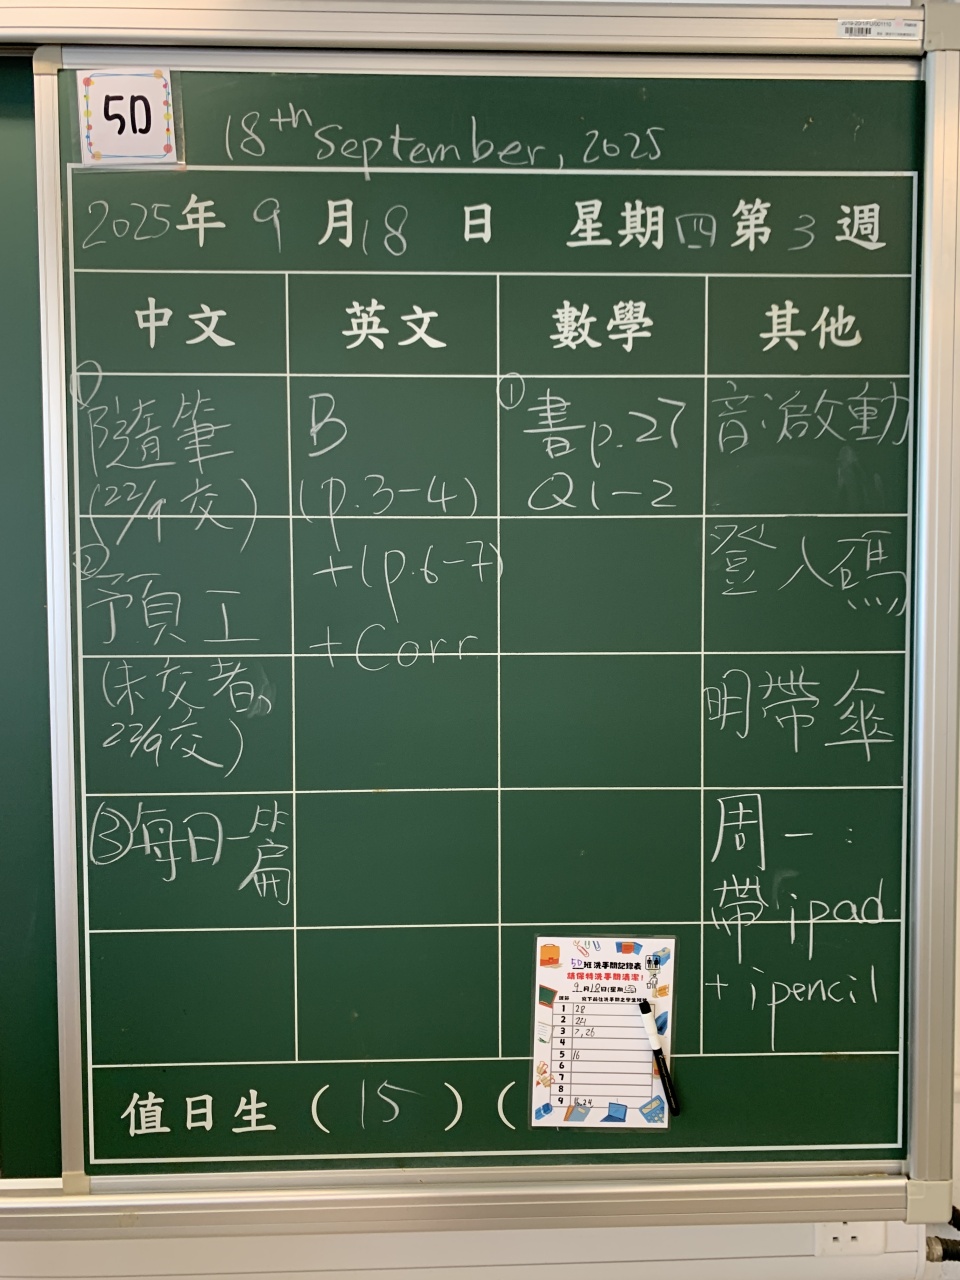 5D
18th September, 2025
2025年 9月18日 星期四第3週
中文 英文 數學 其他
①隨筆
(22/9交)
②預工
(未交者,
22/9交)
③每日一篇
B
(p.3-4)
+(p.6-7)
+Corr
①書p.27
Q1-2
音:啟動
登入碼
明帶傘
周一:
帶ipad
+ipencil
5D班洗手間記錄表
請保持洗手間清潔!
9月18日(星期四)
1 28
2 24
3 7,26
4
5 16
6
7
8
9 16,24
值日生(15)(